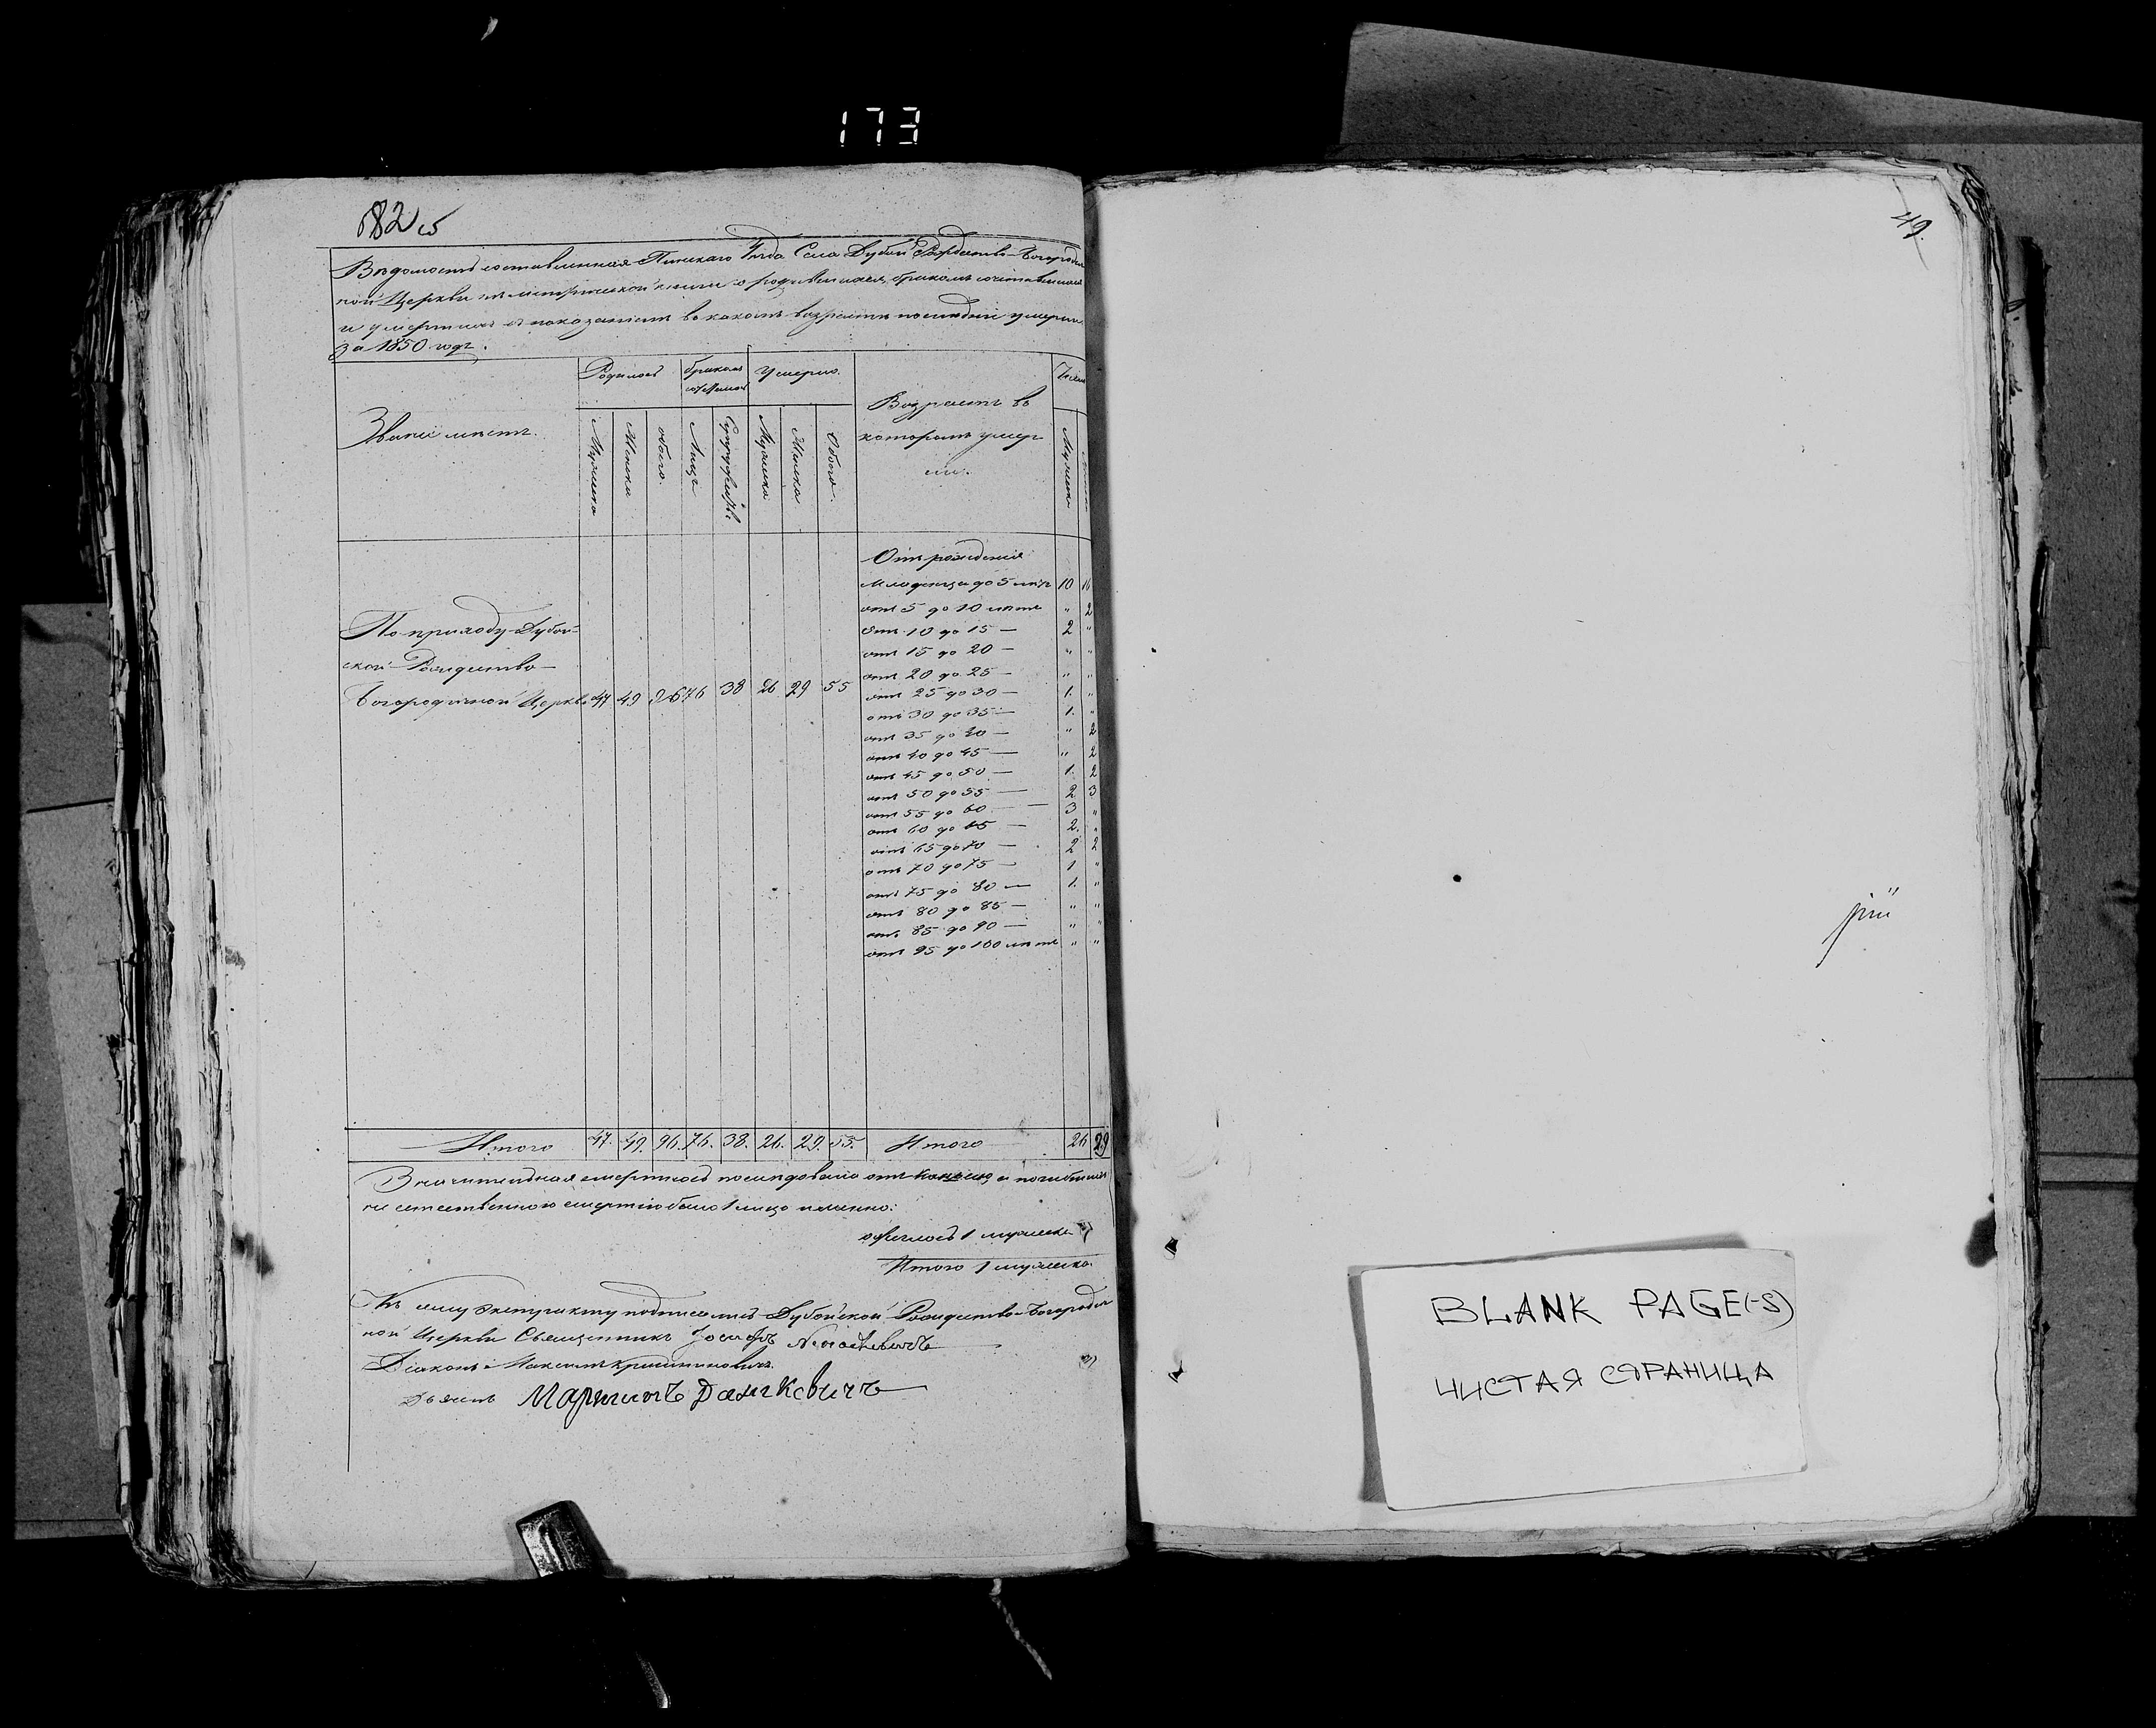 173
582 об
Ведомость составленная Пинскаго Уезда Села Дубой Рождество-Богородич
ной Церкви из метрической книги о родившихся, браком сочетавшихся
и умерших с показанием в каком возрасте последние умерли
за 1850 годъ.
Звание местъ.
Родилось
браком сочеталось
Умерло.
Возрастъ въ
которомъ умер
ли.
Число
Мужеска
Женска
обоего.
Лицъ
Супружествъ
Мужеска
Женска
Обоего.
Мужеска
Женска
Отъ рождения
младенца до 5 летъ 10 16
отъ 5 до 10 летъ " 2
отъ 10 до 15 — 2 "
отъ 15 до 20 — " "
отъ 20 до 25 — " "
отъ 25 до 30 — 1. "
отъ 30 до 35 — 1. "
отъ 35 до 40 — " 2
отъ 40 до 45 — " 2
отъ 45 до 50 — 1. 2
отъ 50 до 55 — 2 3
отъ 55 до 60 — 3 "
отъ 60 до 65 — 2. "
отъ 65 до 70 — 2 2
отъ 70 до 75 — 1 "
отъ 75 до 80 — 1. "
отъ 80 до 85 — " "
отъ 85 до 90 — " "
отъ 95 до 100 летъ " "
По приходу Дубой-
ской Рождество-
Богородичной Церкви 47 49 96 76 38 26 29 55
Итого 47. 49. 96. 76. 38. 26. 29. 55. Итого 26 29
Значительная смертность последовала отъ и погибших
не естественною смертию было 1 лицо именно:
1 мужеска
Итого 1 мужеска.
Къ сему экстракту подписались Дубойской Рождество-Богородич
ной Церкви Священникъ Іосифъ
Діаконъ Максимъ
Дьячекъ Мартинъ Данкевичъ
49.
BLANK PAGE(-S)
ЧИСТАЯ СТРАНИЦА